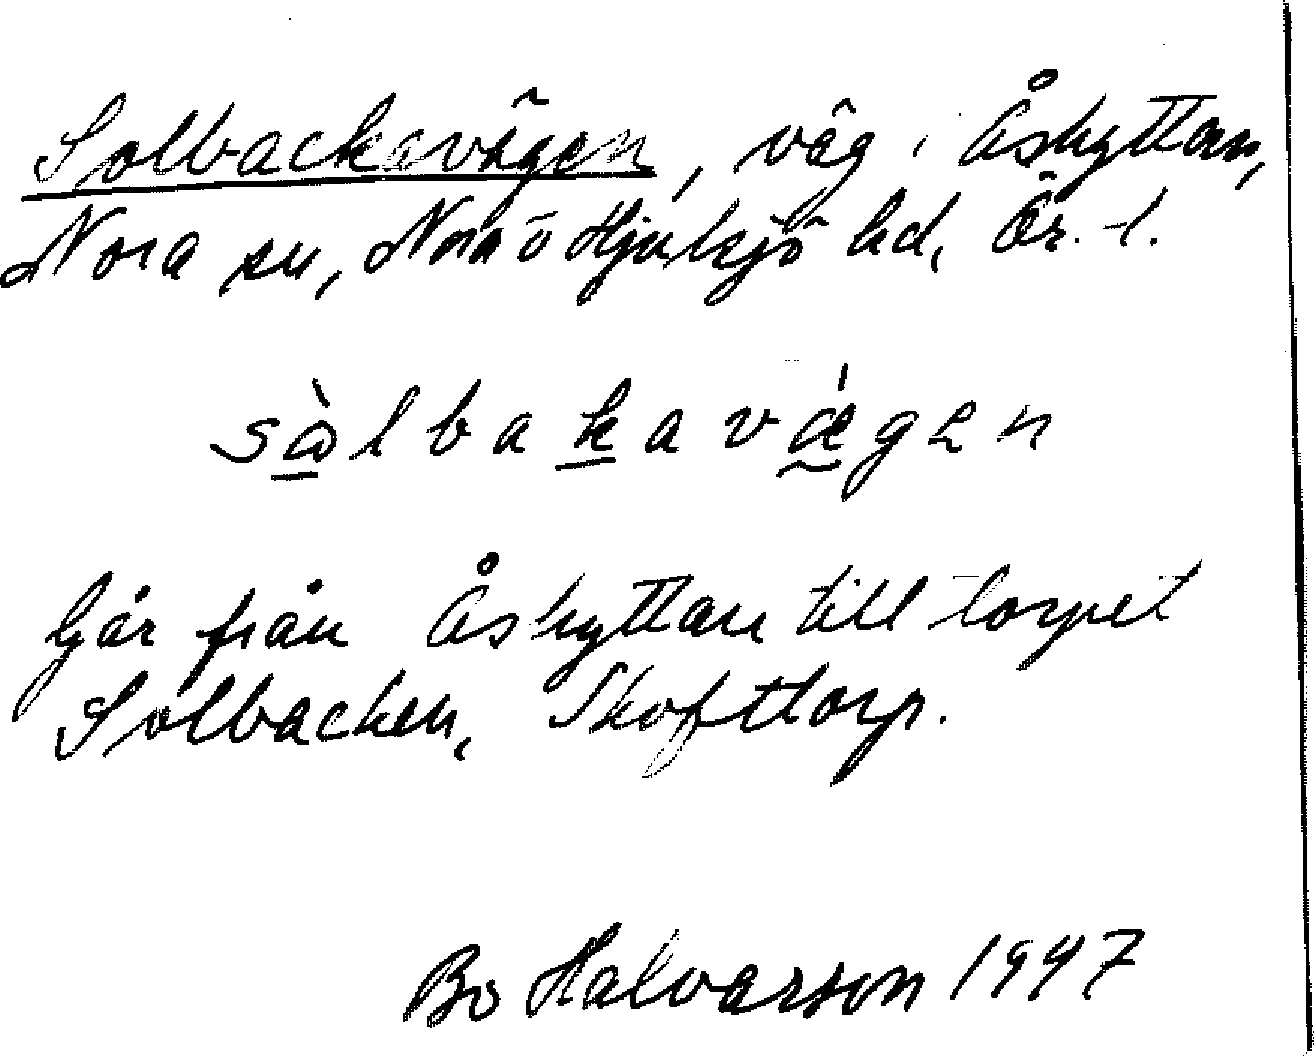 Solbackavägen, väg i Åshyttan,
Nora sn, Nora o Hjulsjö hd, Ör. l.
sὼlbakavǽgen
Går från Åshyttan till torpet
Solbacken, Skofttorp.
Bo Halvarson 1947